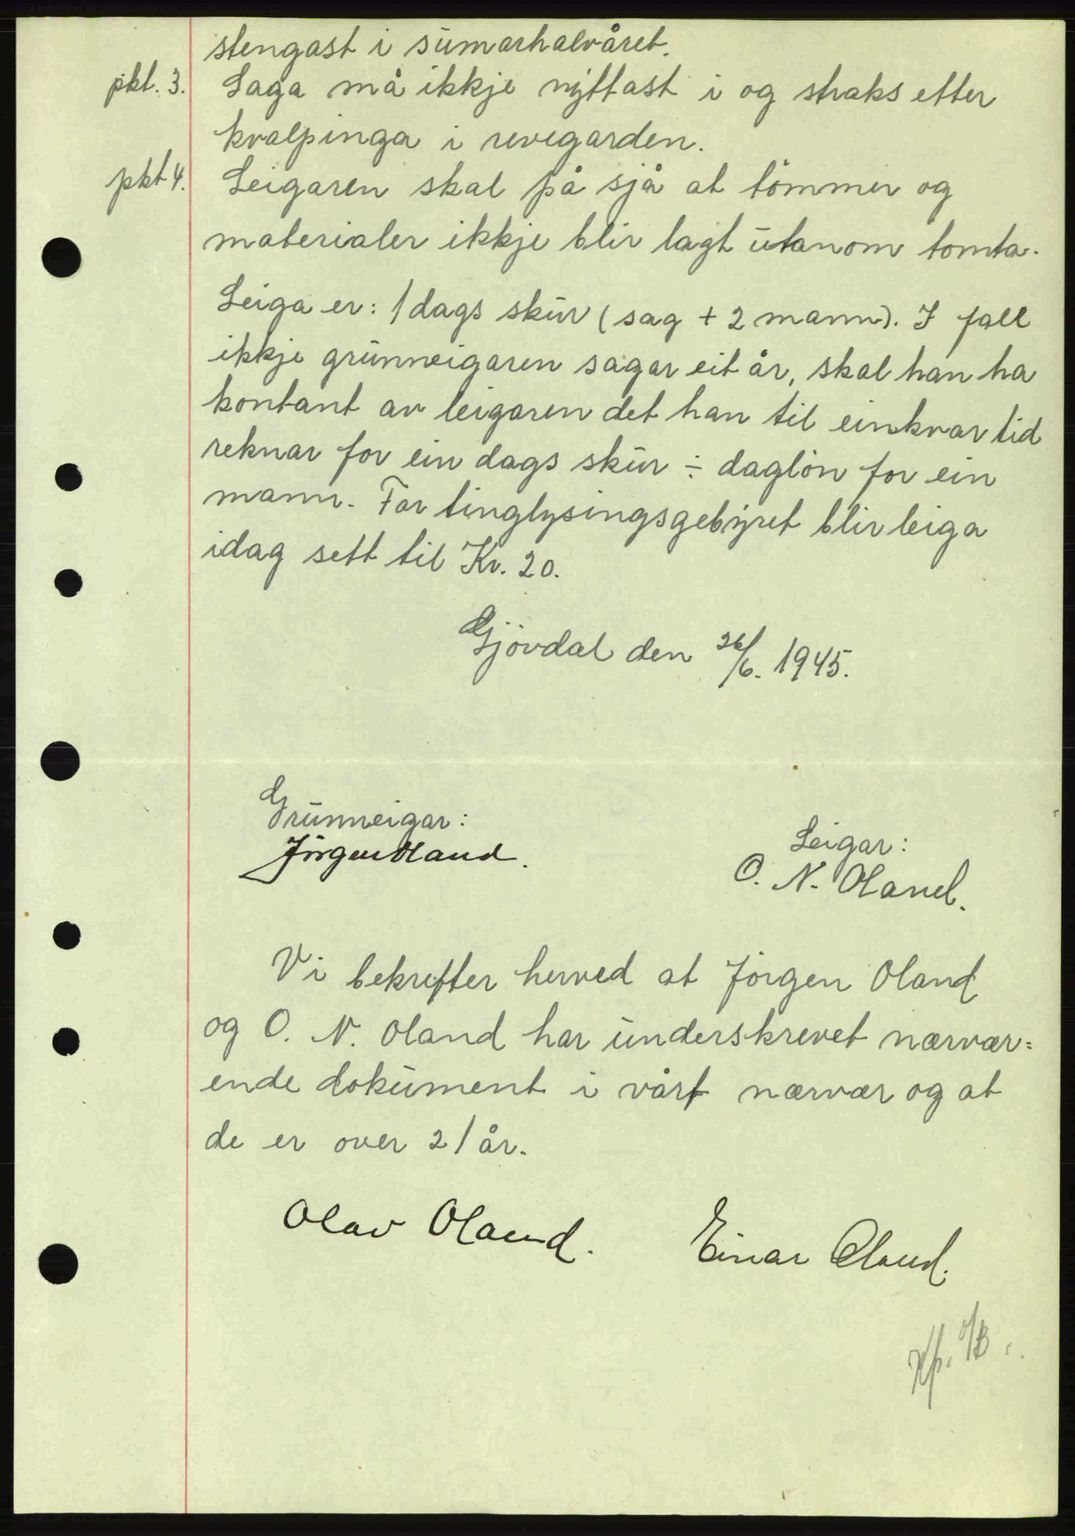 stengast i sumarhalvåret.
pkt. 3. Saga må ikkje nyttast i og straks etter
kvalpinga i revegarden.
pkt 4. Leigaren skal på sjå at tömmer og
materialer ikkje blir lagt utanom tomta.
Leiga er: 1 dags skur (sag + 2 mann). I fall
ikkje grunneigaren sagar eit år, skal han ha
kontant av leigaren det han til einkvar tid
reknar for ein dags skur ÷ daglön for ein
mann. For tinglysingsgebyret blir leiga
idag sett til Kr. 20.
Gjövdal den 26/6. 1945.
Grunneigar:
Jörgen Oland.
Leigar:
O. N. Oland.
Vi bekrefter herved at Jörgen Oland
og O. N. Oland har underskrevet nærvær=
ende dokument i vårt nærvær og at
de er over 21 år.
Olav Oland. Einar Oland.